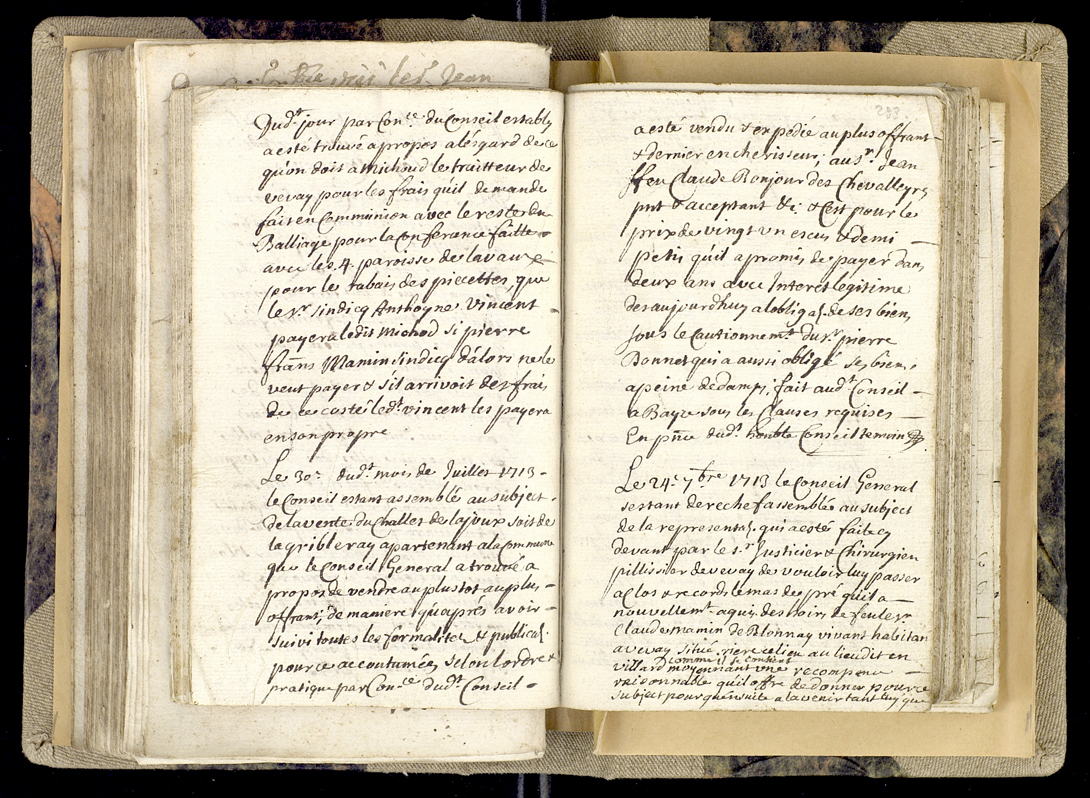 Jean
Dud.t jour par Con.ce du Conseil estably
a esté trouvé a propos a lésgard de ce
qu'on doit a Michod le traitteur de
vevay pour les frais quil demande
fait en Communion avec le reste du
Balliage pour la Conference faitte
avec les 4. paroisse de lavaux
pour le rabais des piecettes, que
le S.r sindicq Anthoyne Vincent
payera ledit Michod si pierre
frans Mamin Sindicq d'alors ne le
veut payer & s'il arrivoit des frais
de ce costé led.t vincent les payera
en son propre
Le 30.e dud.t mois de Juillet 1713 -
le Conseil estant assemblé au subject
de la vente du Challet de lajoux soit de
la gribleray apartenant a la Commune
que le Conseil General a trouvé a
propos de vendre au plustot au plus
offrant, de maniere qu'aprés avoir
suivi toutes les formalités & publicat.
pour ce accoutumées, selon lordre &
pratique par Con.ce dud.t Conseil -
293
a esté vendu & expedié au plus offrant
& dernier encherisseur, au S.r Jean
ffeu Claude Bonjour des Chevalleyres
pnt & acceptant &c: & C'est pour le
prix de vingt un escus & demi
petis quil a promis de payer dans
deux ans avec Interest legitime
des aujourdhuy a lobliga.on de ses biens
sous le Cautionnem.t du S.r pierre
Bonnet qui a aussi obligé ses biens
a peine de damps, fait aud.t Conseil
a Bayse sous les Clauses requises
En pnce dud.t honble Conseil temoin
Le 24.e 7bre 1713 le Conseil General
sestant derechef assemblé au subject
de la representa.on qui a esté faite cy
devant par le s.r Justicier & Chirurgien
pillissier de vevay de vouloir luy passer
a Clos & record le mas de pré quil a
nouvellem.t aquis des hoirs de feu le S.r
Claude mamin de Blonnay vivant habitant
a vevay situé riere ce lieu au lieu dit en
villard comme il se contient moyennant une recompense
raisonnable quil offre de donner pour ce
subject pour qu'ensuite a lavenir tant luy que